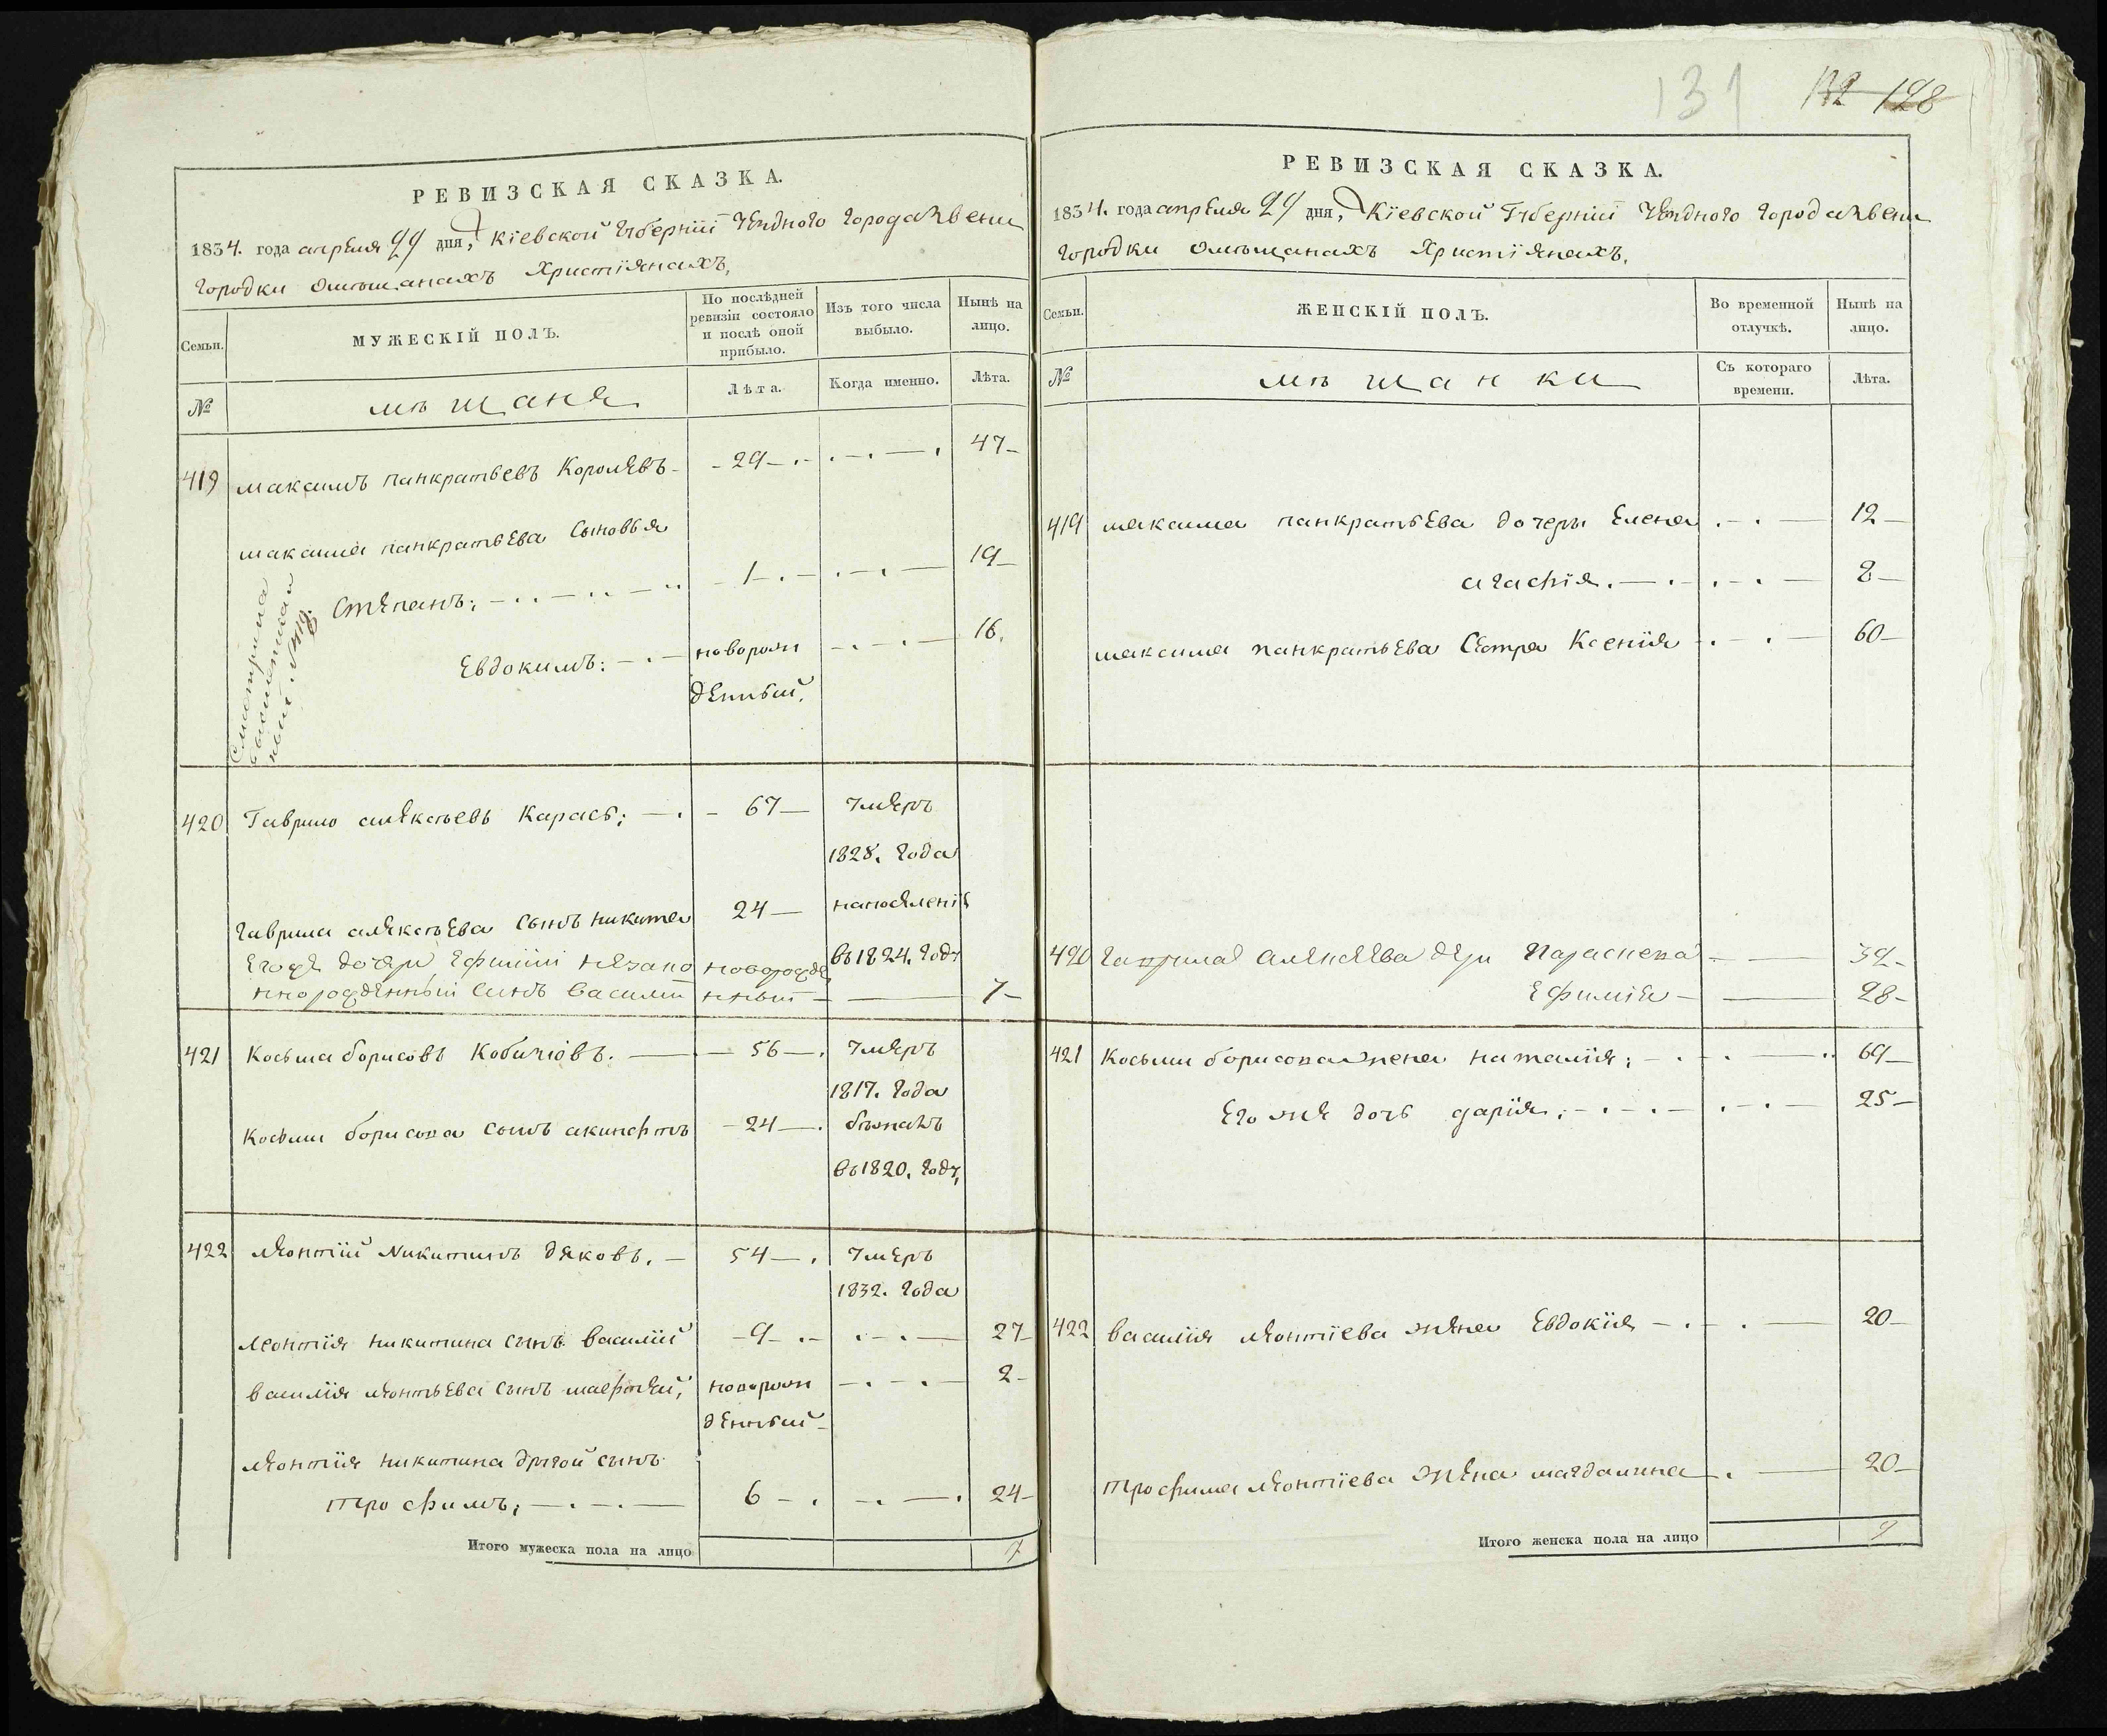 131 132 128
РЕВИЗСКАЯ СКАЗКА.
1834. года апреля 29 дня, Кіевской Губерніи Уездного Города Звени
Городки Омѣщанахъ Христіянахъ,
Семьи. МУЖЕСКІЙ ПОЛЪ. По послѣдней ревизіи состояло и послѣ оной прибыло. Изъ того числа выбыло. Нынѣ на лицо.
№ мѣщане Лѣта. Когда именно. Лѣта.
419 Максимъ панкратьевъ Королевъ 29 47
максима панкратьева Сыновья
Степанъ; 1 19
Евдокимъ: новорож 16.
денный.
420 Гаврило алексѣевъ Карась; 67 Умеръ
1828. Года
Гаврила алексѣева Сынъ никита 24 напоселеніе
в 1824. Году
Егоже дочери Ефиміи незако новорожде
ннорожденный Сынъ василій нный 7
421 Косьма борисовъ 56 Умеръ
1817. Года
Косьми борисова Сынъ акинфтъ 24 бѣжалъ
въ 1820. Году,
422 Леонтій Никитинъ дяковъ. 54 Умеръ
1832. Года
Леонтія никитина сынъ василій 9 27
василія леонтьева Сынъ матфей, новорож 2
денный
Леонтія никитина другой сынъ
трофимъ; 6 24
Итого мужеска пола на лицо 7
РЕВИЗСКАЯ СКАЗКА.
1834. года апреля 29 дня, Кіевской Губерніи Уездного Города Звени
Городки Омѣщанахъ Христіянахъ.
Семьи. ЖЕНСКІЙ ПОЛЪ. Во временной отлучкѣ. Нынѣ на лицо.
№ мѣщанки Съ котораго времени. Лѣта.
419 максима панкратьева дочери Елена 12
агафія. 8
максима панкратьева Сестра Ксенія 60
420 Гаврила Алексеева дери Параскева 32
Ефимія 28
421 Косьми борисова жена наталія; 69
Его же дочь дарія; 25
422 василія леонтіева жена Евдокія 20
трофима леонтіева жена магдалина 20
Итого женска пола на лицо 9